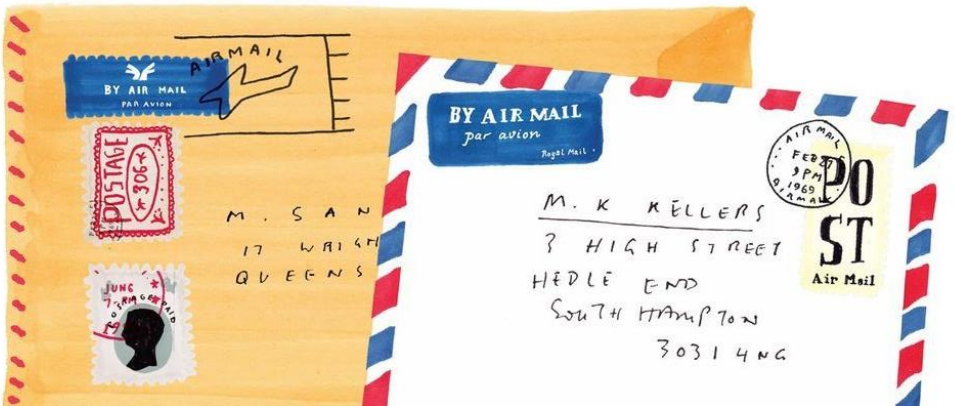 AIRMAIL
BY AIR MAIL
PAR AVION
POSTAGE
306
M. SAN
17 WRIGH
QUEENS
JUNG
POSTAGE PAID
BY AIR MAIL
par avion
Royal Mail
AIR MAIL
FEB 27
9 PM
1969
AIRMAIL
PO
ST
Air Mail
M. K KELLERS
3 HIGH STREET
HEDLE END
SOUTH HAMPTON
3031 4NG